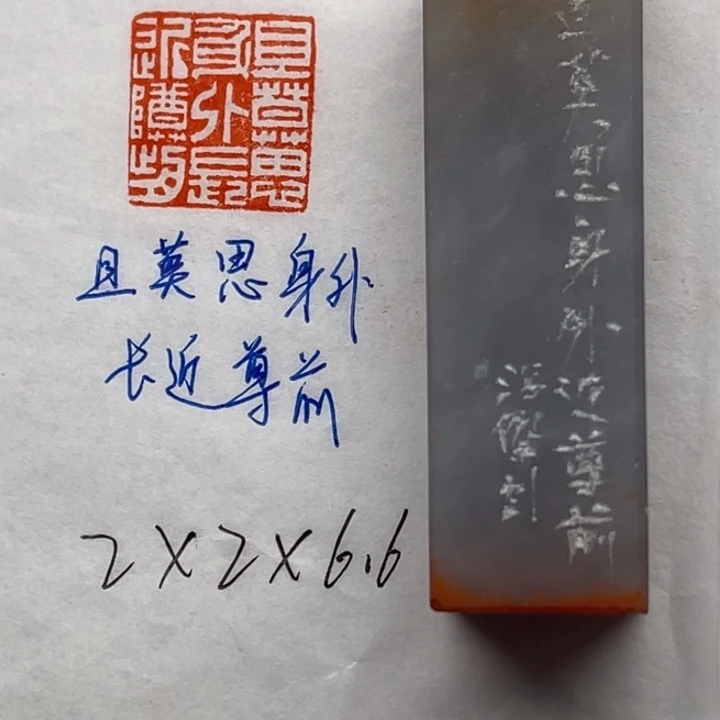 且莫思
身外長
近尊前
且莫思身外
长近尊前
2×2×6.6
且莫思身外近尊前